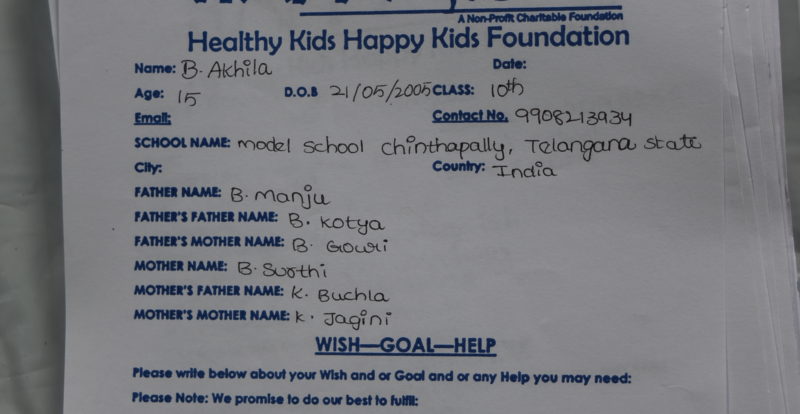 A Non-Profit Charitable Foundation
Healthy Kids Happy Kids Foundation
Name: B. Akhila Date:
Age: 15 D.O.B 21/05/2005 CLASS: 10th
Email: Contact No. 9908213934
SCHOOL NAME: model school chinthapally, Telangana state
City: Country: India
FATHER NAME: B. Manju
FATHER'S FATHER NAME: B. Kotya
FATHER'S MOTHER NAME: B. Gowri
MOTHER NAME: B. Surthi
MOTHER'S FATHER NAME: K. Buchla
MOTHER'S MOTHER NAME: K. Jagini
WISH—GOAL—HELP
Please write below about your Wish and or Goal and or any Help you may need:
Please Note: We promise to do our best to fulfil: